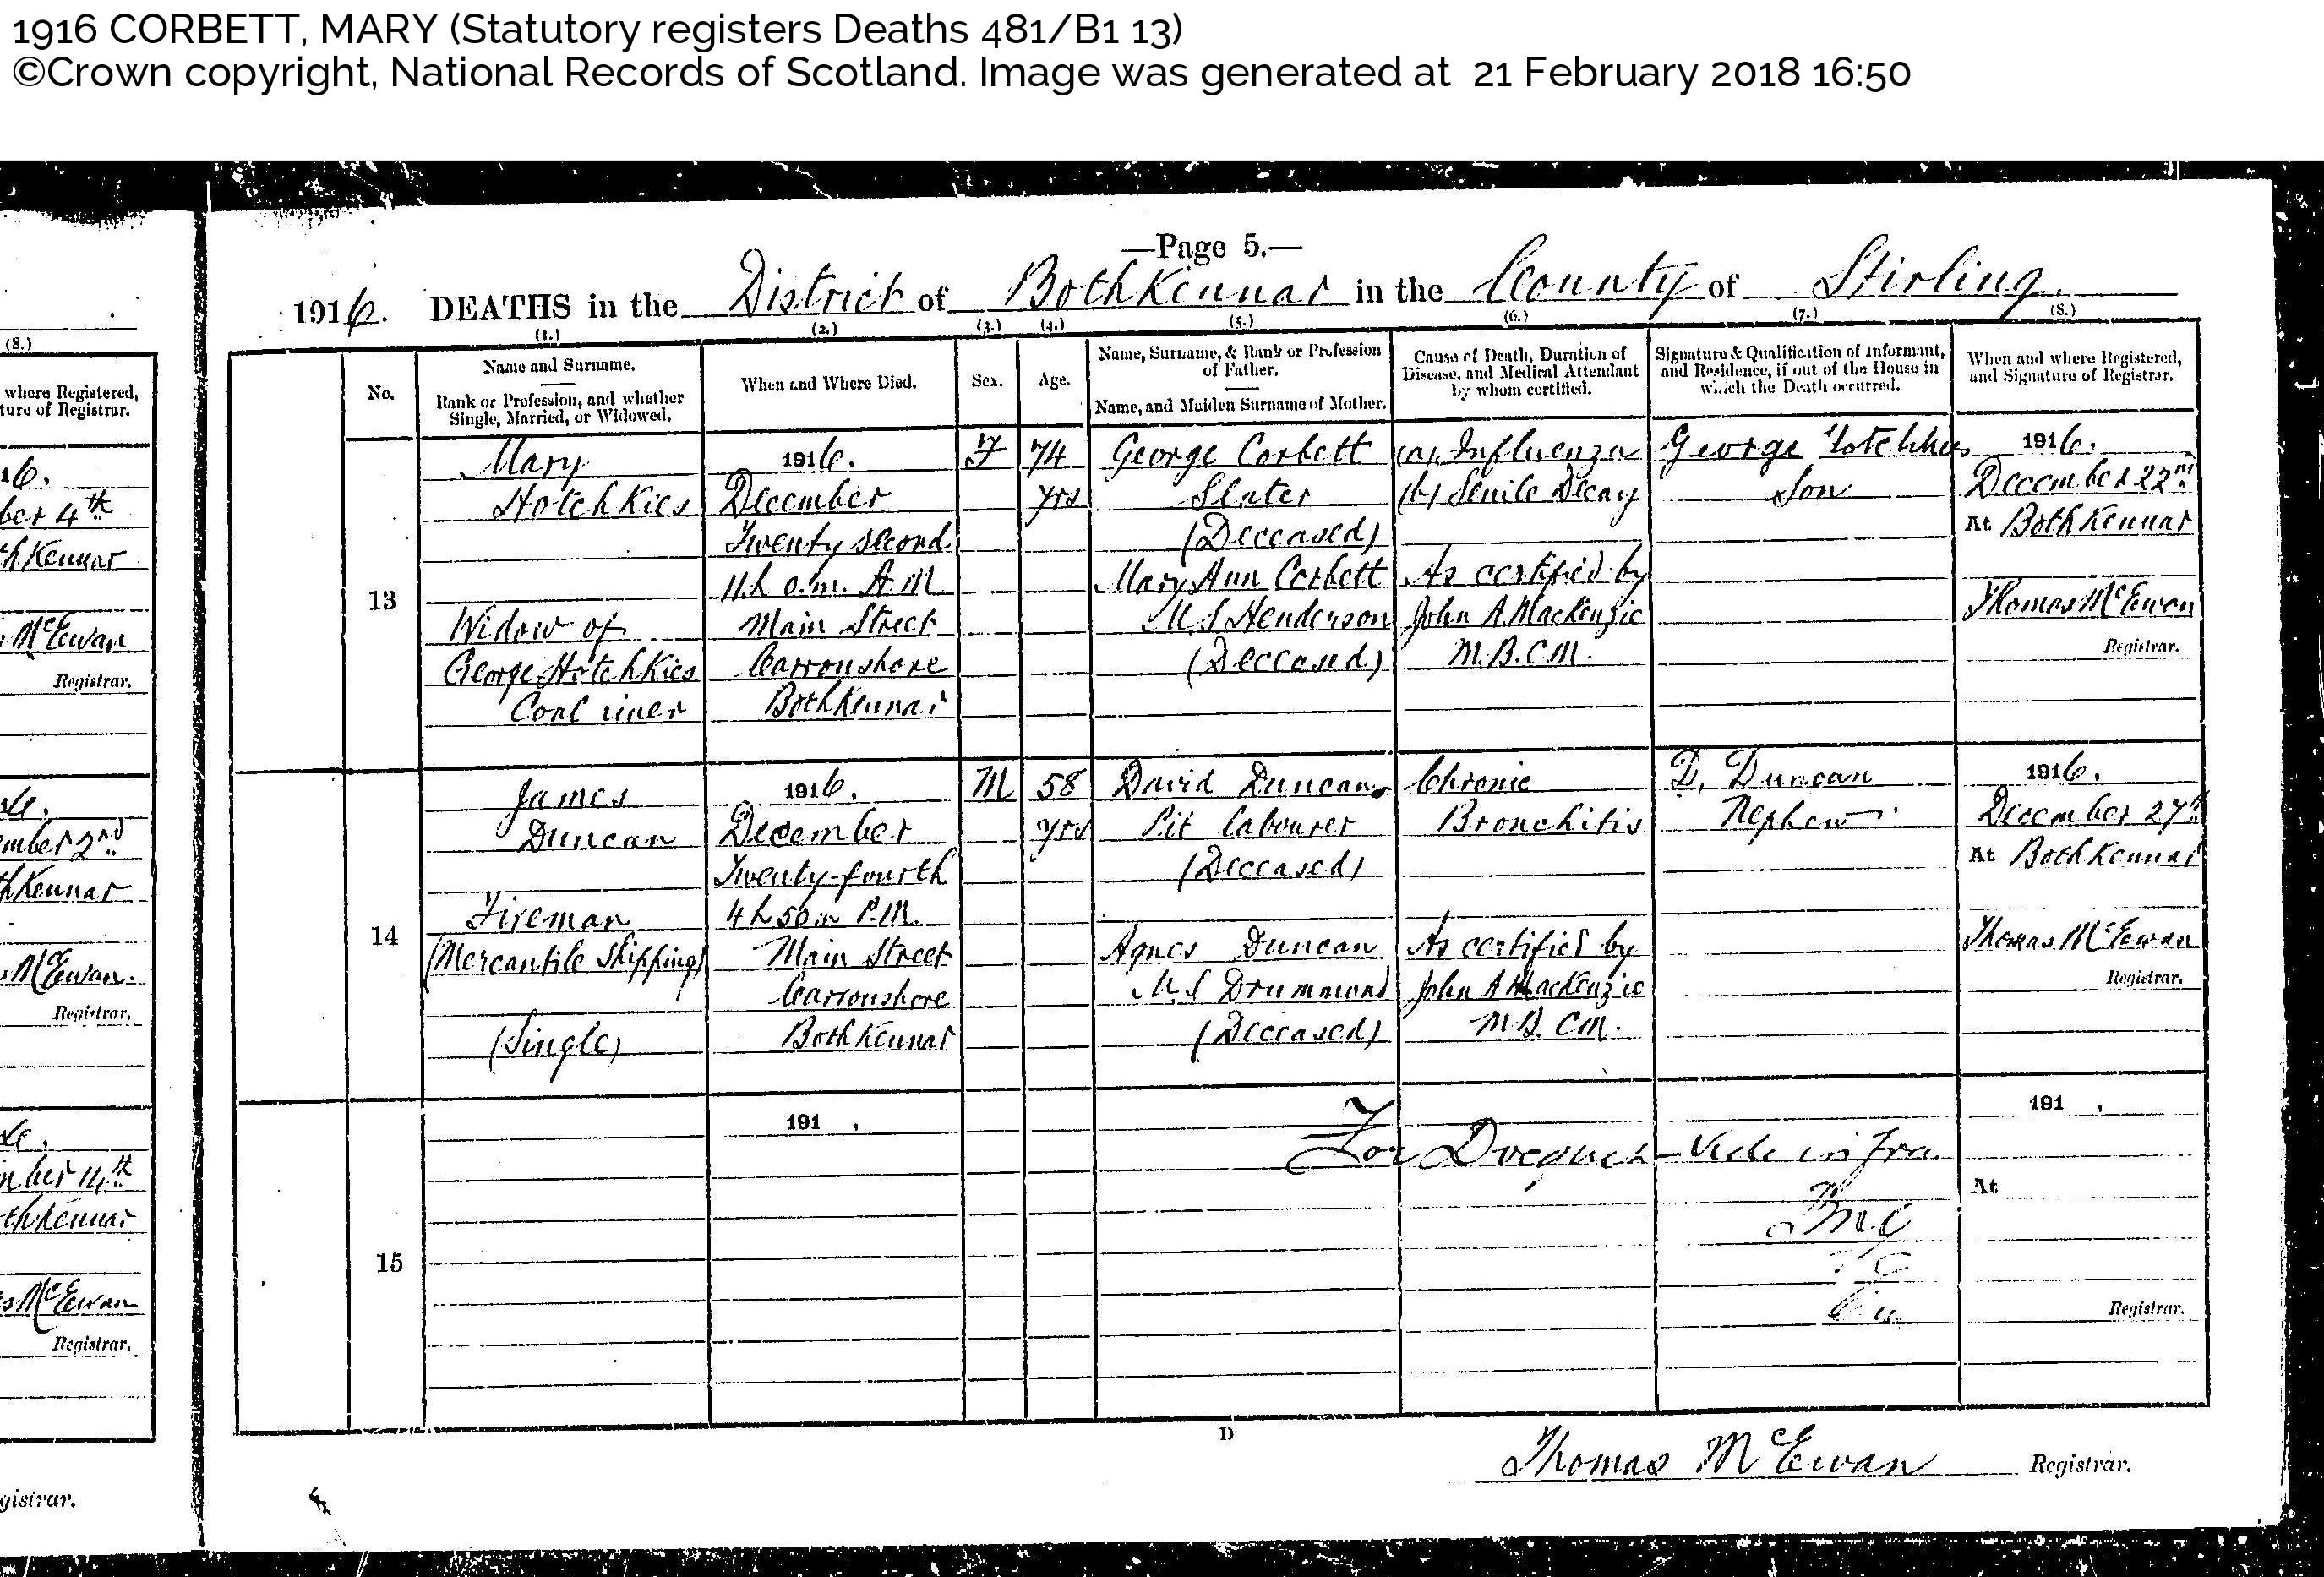 1916 CORBETT, MARY (Statutory registers Deaths 481/B1 13)
©Crown copyright, National Records of Scotland. Image was generated at 21 February 2018 16:50
—Page 5.—
1916. DEATHS in the District of Bothkennar in the County of Stirling.
(1.) (2.) (3.) (4.) (5.) (6.) (7.) (8.)
No.
Name and Surname.
Rank or Profession, and whether
Single, Married, or Widowed.
When and Where Died.
Sex.
Age.
Name, Surname, & Rank or Profession
of Father.
Name, and Maiden Surname of Mother.
Cause of Death, Duration of
Disease, and Medical Attendant
by whom certified.
Signature & Qualification of Informant,
and Residence, if out of the House in
which the Death occurred.
When and where Registered,
and Signature of Registrar.
13
Mary
Hotchkies
Widow of
George Hotchkies
Coal iner
1916.
December
Twenty second
11.h 0.m. A.M
Main Street
Carronshore
Bothkennar
F
74
yrs
George Corbett
Slater
(Deceased)
Mary Ann Corbett
M.S Henderson
(Deceased)
(a) Influenza
(b) Senile Decay
As certified by
John A. MacKenzie
M.B.C.M.
George Hotchkies
Son
1916.
December 22nd
At Bothkennar
Thomas McEwan
Registrar.
14
James
Duncan
Fireman
(Mercantile Shipping)
(Single)
1916.
December
Twenty-fourth
4 h 50 m P.M.
Main Street
Carronshore
Bothkennar
M
58
yrs
David Duncan
Pit labourer
(Deceased)
Agnes Duncan
M.S Drummond
(Deceased)
Chronic
Bronchitis
As certified by
John A MacKenzie
M.B. C.M.
D. Duncan
Nephew
1916.
December 27th
At Bothkennar
Thomas McEwan
Registrar.
15
191 .
For Docquet—Vide infra.
191 .
At
Registrar.
D
Thomas McEwan Registrar.
(8.)
where Registered,
ture of Registrar.
16.
ber 4th
hkennar
McEwan
Registrar.
mber 2nd
hkennar
McEwan.
Registrar.
mber 14th
thkennar
McEwan
Registrar.
gistrar.